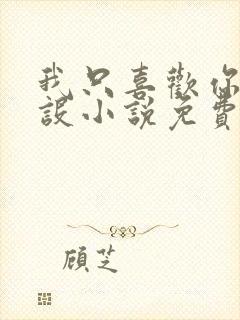 我只喜歡你
設小說免費
顧芝